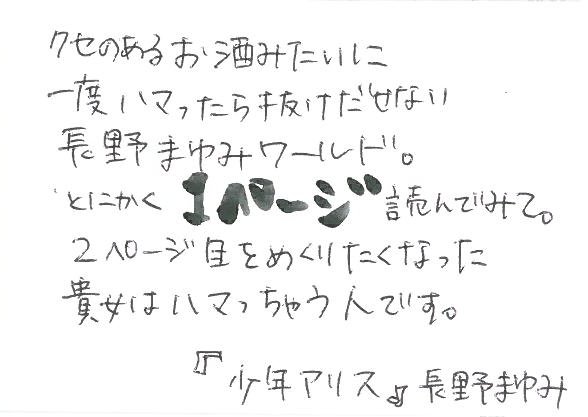 クセのあるお酒みたいに
一度ハマったら抜けだせない
長野まゆみワールド。
とにかく1ページ読んでみて。
2ページ目をめくりたくなった
貴女はハマっちゃう人です。
『少年アリス』長野まゆみ